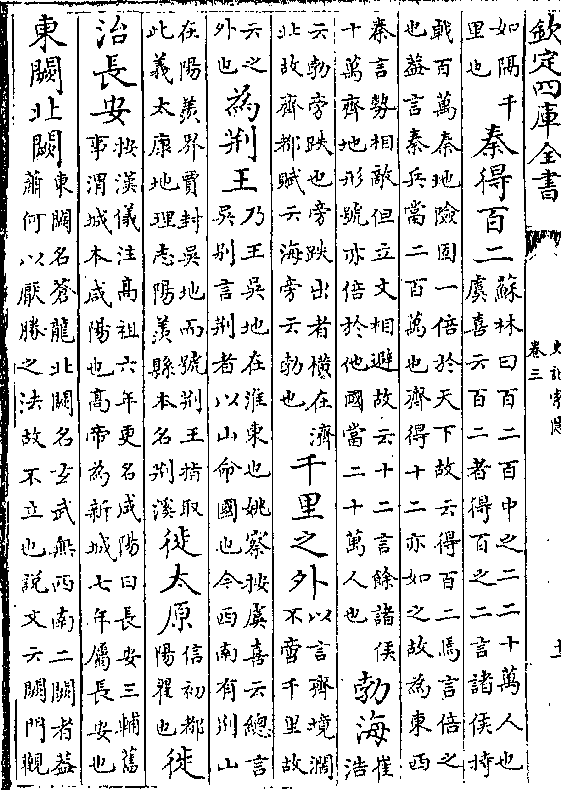 欽定四庫全書
史記索隱
卷三
十一
如隔千里也秦得百二蘇林曰百二百中之二二十萬人也虞喜云百二者得百之二言諸侯持
戟百萬秦地險固一倍於天下故云得百二焉言倍之也蓋言秦兵當二百萬也齊得十二亦如之故為東西
秦言勢相敵但立文相避故云十二言餘諸侯十萬齊地形號亦倍於他國當二十萬人也勃海崔浩
云勃旁跌也旁跌出者橫在濟北故齊都賦云海旁云勃也千里之外以言齊境濶不啻千里故
云之外也為荆王乃王吳地在淮東也姚察按虞喜云總言吳别言荆者以山命國也今西南有荆山
在陽羨界賈封吳地而號荆王指取此義太康地理志陽羨縣本名荆溪徙太原信初都陽翟也徙
治長安按漢儀注髙祖六年更名咸陽曰長安三輔舊事渭城本咸陽也髙帝為新城七年屬長安也
東闕北闕東闕名蒼龍北闕名玄武無西南二闕者蓋蕭何以厭勝之法故不立也說文云闕門觀